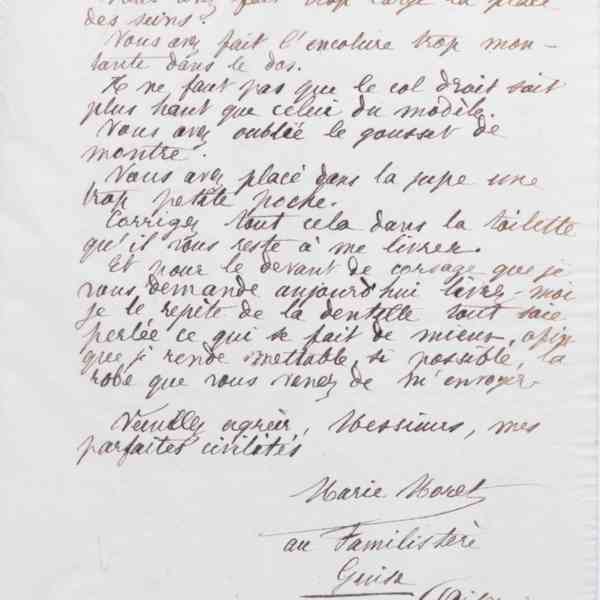 Vous avez fait trop large la place
des seins?
Vous avez fait l'encolure trop mon-
tante dans le dos.
Il ne faut pas que le col droit soit
plus haut que celui du modèle.
Vous avez oublié le gousset de
montre.
Vous avez placé dans la jupe une
trop petite poche.
Corrigez tout cela dans la toilette
qu'il vous reste à me livrer.
Et pour le devant de corsage que je
vous demande aujourd'hui livrez-moi
je le répète de la dentelle tout soie
perlée ce qui se fait de mieux, afin
que je rende mettable, si possible, la
robe que vous venez de m'envoyer.
Veuillez agréer, Messieurs, mes
parfaites civilités
Marie Moret
au Familistère
Guise